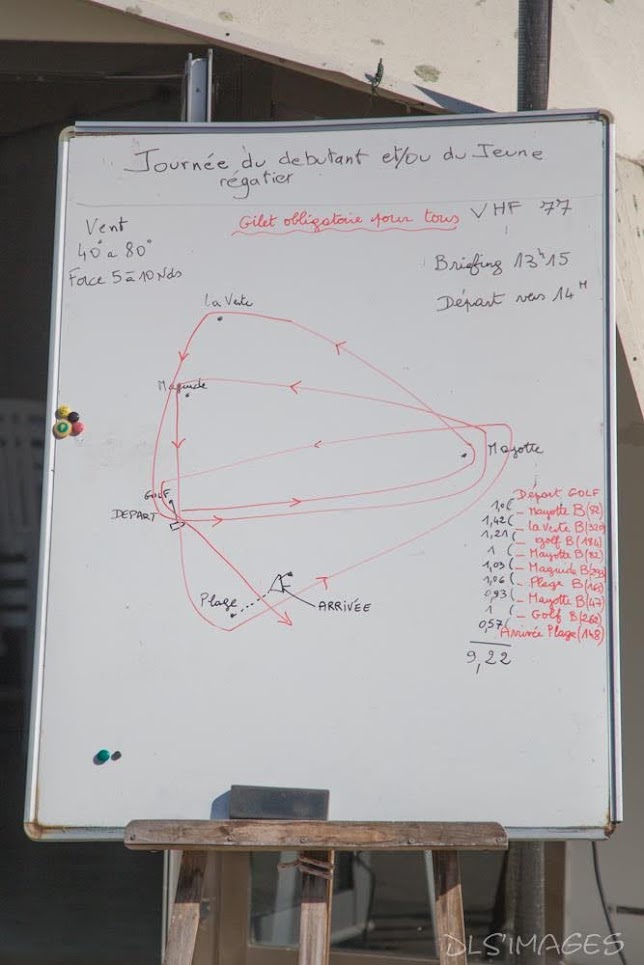 Journée du debutant et/ou du Jeune
régatier
Gilet obligatoire pour tous
VHF 77
Vent
40° a 80°
Force 5 à 10 Nds
Briefing 13h15
Départ vers 14H
La Verte
Maguide
Mayotte
GOLF
DEPART
Plage
ARRIVÉE
Départ GOLF
Mayotte B(82)
1,42 ( - la Verte B(320)
1,21 ( - golf B(184)
1 ( - Mayotte B(82)
1,03 ( - Maguide B
1,06 ( - Plage B(163)
0,93 ( - Mayotte B(47)
1 ( - Golf B(262)
0,57 ( Arrivée Plage(148)
9,22
DLS'IMAGES